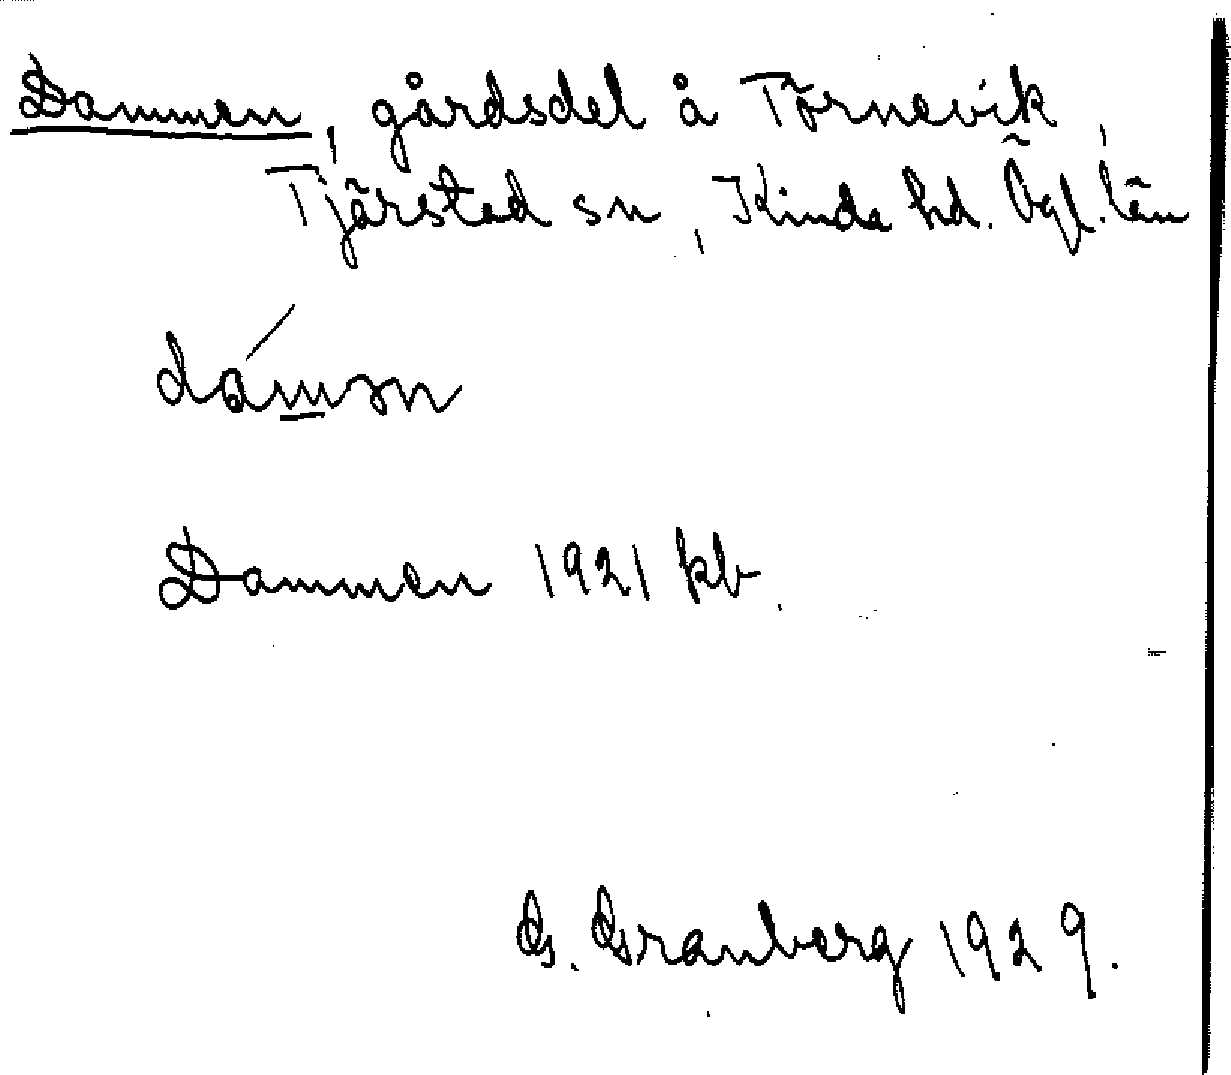 Dammen, gårdsdel å Törnevik,
Tjärstad sn, Kinda hd. Ögl. län
dám̲ən
Dammen 1921 kb.
G. Granberg 1929.